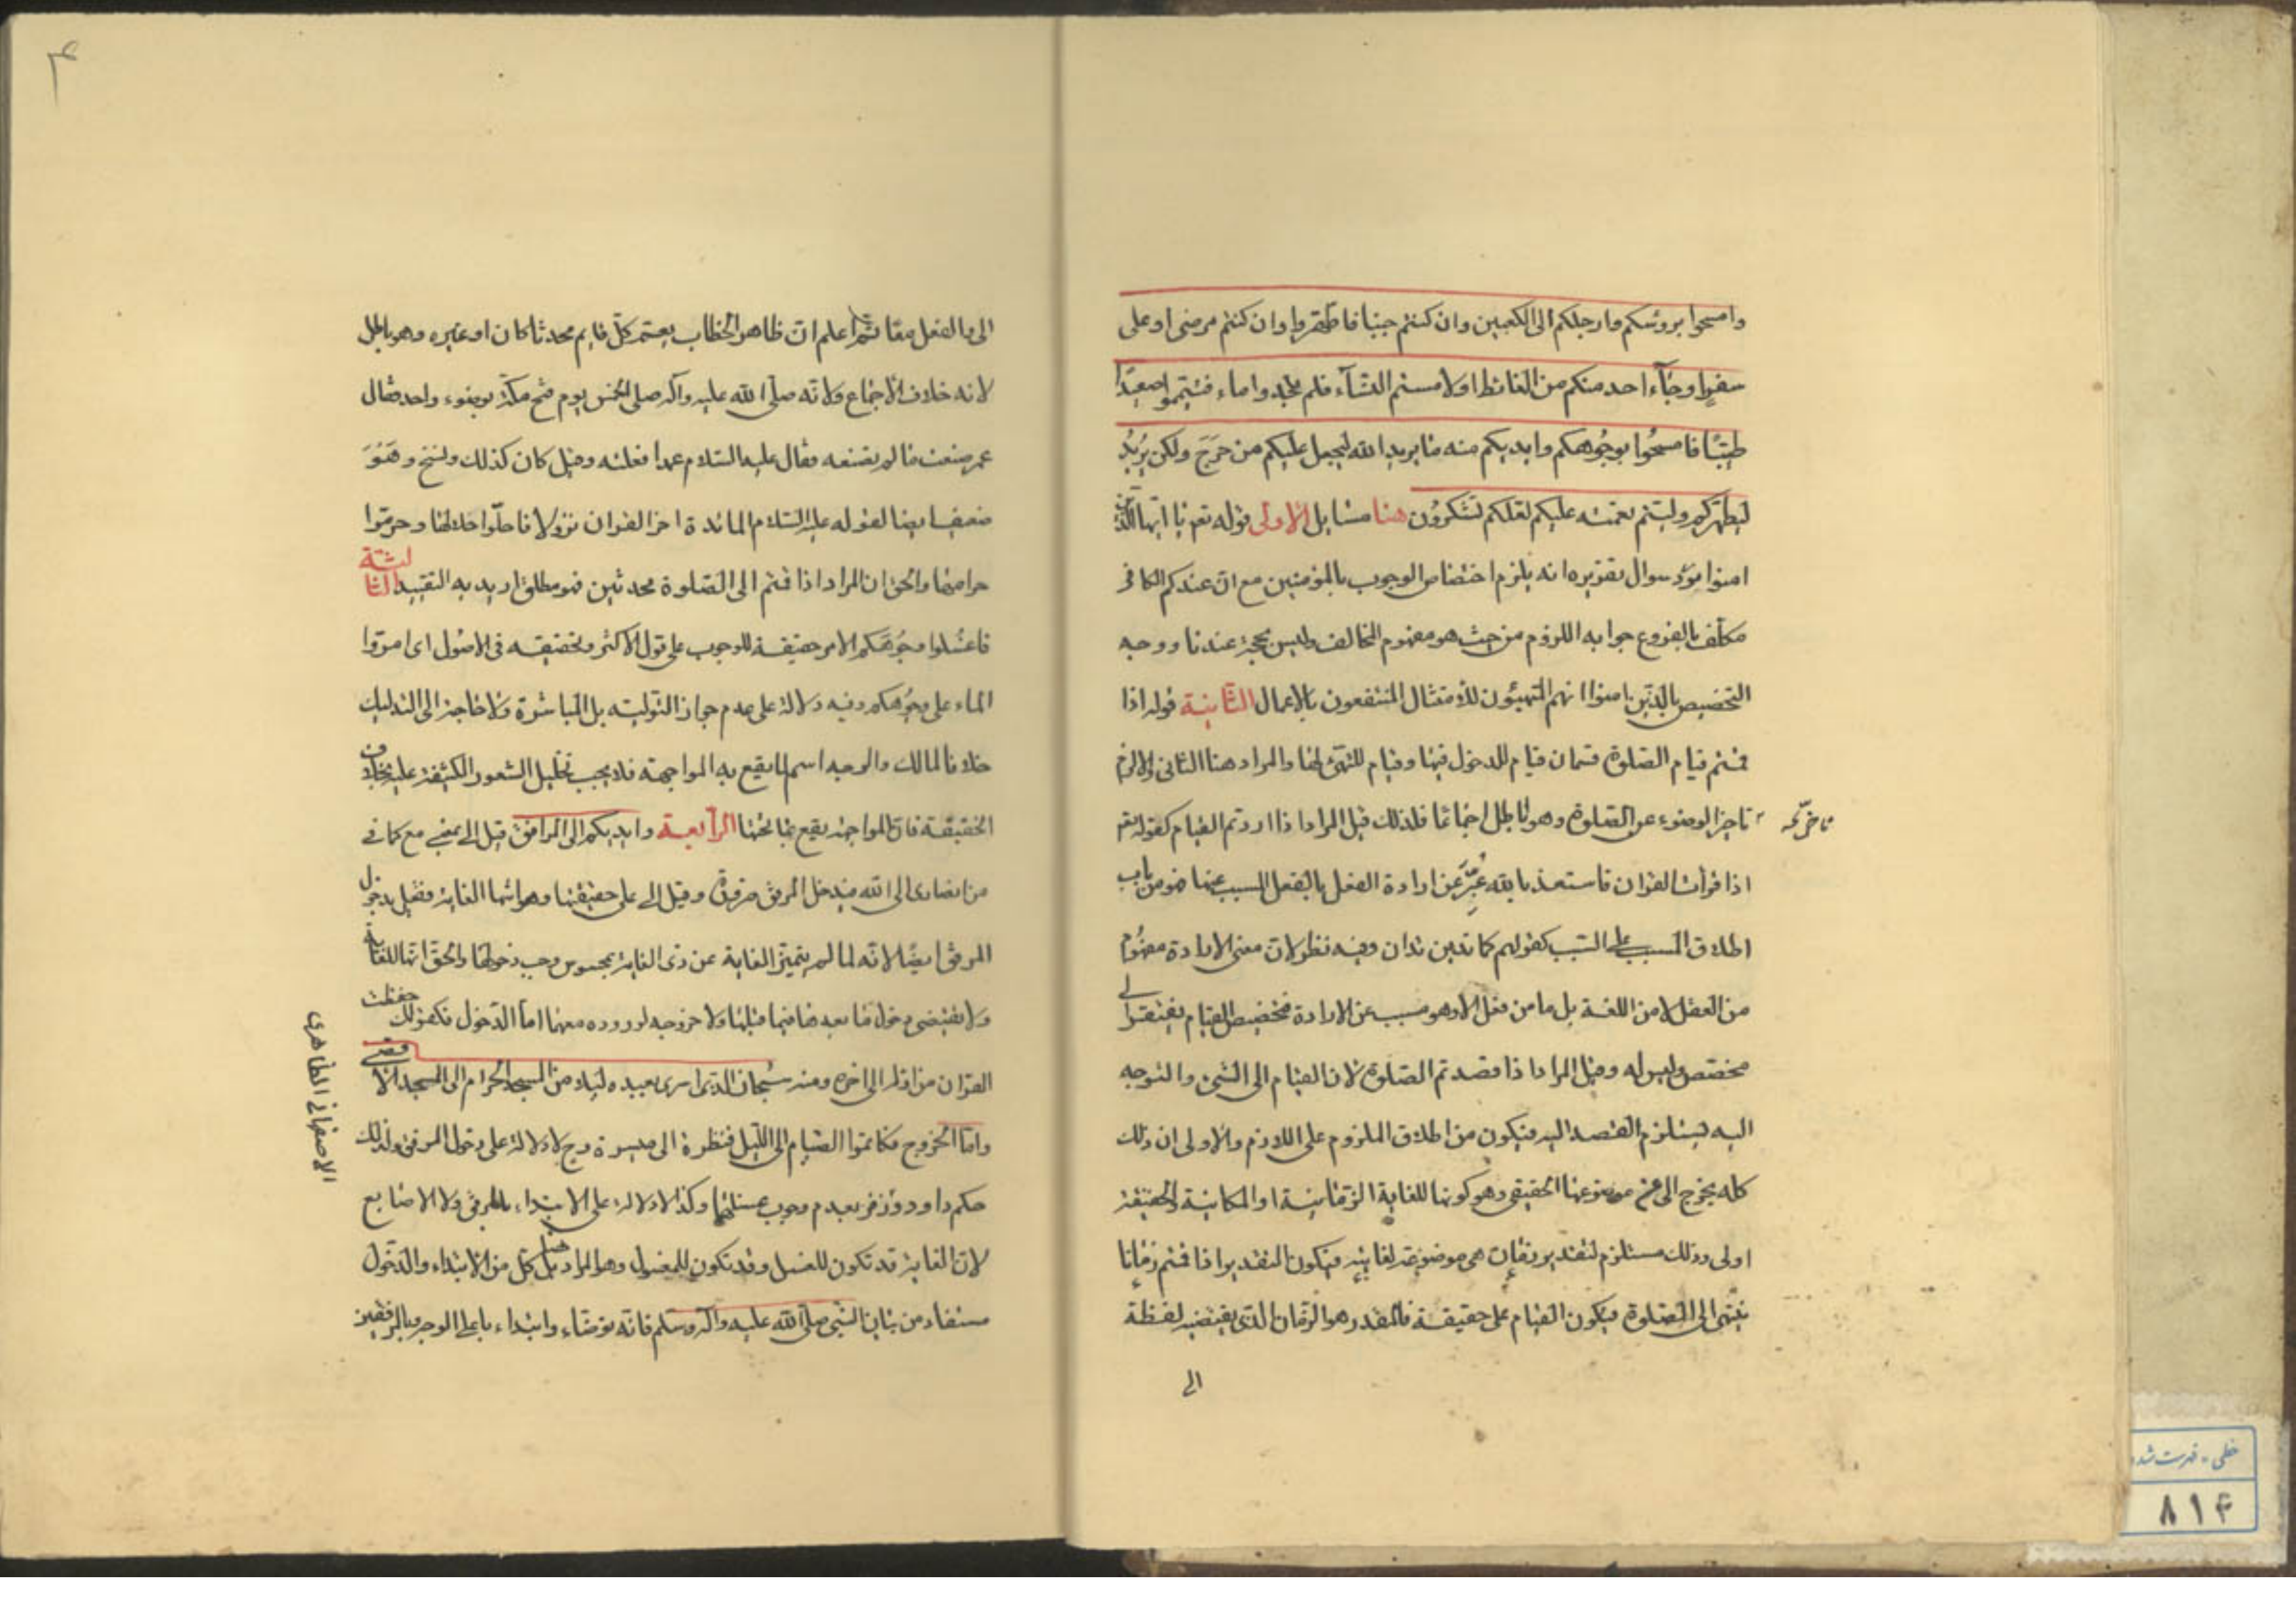 وامسحوا برؤسكم وارجلكم الى الكعبين وان كنتم جنبا فاطهروا وان كنتم مرضى او على
سفر او جآء احد منكم من الغائط او لامستم النسآء فلم تجدوا ماء فتيمموا صعيدًا
طيّبًا فامسحُوا بوجُوهكم وايديكم منه ما يريد الله ليجعل عليكم من حَرَجَ ولكن يُريُد
ليطهّركم وليتم نعمته عليكم لعلكم تشكروُن هنا مسايل الاولى قوله تعم يا ايها الذين
امنوا مورد سوال تقريره انه يلزم اختصاص الوجوب بالمؤمنين مع ان عندكم الكافر
مكلّف بالفروع جوابه اللزوم من حيث هو مفهوم المخالف وليس بحجة عندنا ووجه
التخصيص بالذين امنوا انهم المتهيئون للأمتثال المنتفعون بالاعمال الثانية قوله اذا
قمتم قيام الصلوة قسمان قيام للدخول فيها وقيام للتهئ لها والمراد هنا الثانى والا لزم
تاخير الوضوء عن الصلوة وهو باطل اجماعا فلذلك قيل المراد اذا اردتم القيام كقوله تعم
اذا قرأت القران فاستعذ بالله عُبِّرَ عن ارادة الفعل بالفعل المسبب عنها فهو من باب
اطلاق المسبب على السّبب كقولهم كما تدين تدان وفيه نظر لان معنى الارادة مفهُوم
من العقل لا من اللغة بل ما من فعل الا وهو مسبب عن الارادة فتخصيص القيام يفتقر الى
مخصّص وليس له وقيل المراد اذا قصدتم الصلوة لان القيام الى الشئ والتوجه
اليه يستلزم القصد اليه فيكون من اطلاق الملزوم على اللازم والاولى ان ذلك
كله يخرج الى عن موضوعها الحقيقى وهو كونها للغاية الزمانية او المكانية والحقيقة
اولى وذلك مستلزم لتقدير زمان هى موضوعة لغايته فيكون التقدير اذا قمتم زمانا
ينتهى الى الصلوة فيكون القيام على حقيقة فالمقدر هو الزمان الذى يقتضيه لفظة
الى
٤
الى بالفعل معا ثم اعلم ان ظاهر الخطاب يعتم كلّ قايم محدثا كان او غيره وهو باطل
لانه خلاف الاجماع ولانّه صلى الله عليه وآله صلى الخمس يوم فتح مكّة بوضوء واحد فقال
عمر صنعت ما لم تصنعه فقال عليه السّلام عمدا فعلته وقيل كان كذلك ونسخ وهَوُوَ
ضعيف ايضا لقوله عليه السّلام المائدة اخر القران نزولا فاحلّوا حلالها وحرّموا
حرامها والحق ان المراد اذا قمتم الى الصّلوة محدثين فهو مطلق اريد به التقييد الثالثة
فاغسُلوا وجُوهَكم الامر حقيقة للوجوب على قول الاكثر وتحقيقه فى الاصُول اى امرّوا
الماء على وجُوهكم وفيه دلالة على عدم جواز التّولية بل المباشرة ولا حاجة الى التدليك
خلافا لمالك والوجه اسم لما يقع به المواجهة فلا يجب تخليل الشعور الكثيفة عليه بخلاف
الخفيفة فان المواجهة يقع بما تحتها الرابعة وايديكم الى المرافق قيل الى بمعنى مع كما فى
من انصارى الى الله فيدخل المرفق ضرورة وقيل الى على حقيقتها وهو انتهآ الغاية فقيل بدخول
المرفق ايضًا لانّه لما لم يتميّز الغاية عن ذى الغاية بمحسوس وجب دخولها والحقّ انها للغاية
ولا يقتضى دخول ما بعدها فيما قبلها ولا خروجه لوروده معهما امّا الدّخول فكقولك حفظت
القران من اوله الى اخره ومنه سُبحان الّذى اسرى بعبده ليلا من المسجد الحرام الى المسجد الاقصى
وامّا الخروج فكاتموا الصّيام الى اللّيل فنظرة الى ميسرة وح لا دلالة على دخول المرفق ولذلك
حكم داود وزفر بعدم وجوب غسلها وكذا لا دلالة على الابتداء بالمرفق ولا الاصابع
لان الغاية قد تكون للغسل وقد تكون للمغسول وهو المراد هنا بل كل من الابتداء والدّخول
مستفاد من بيان النّبى صلّى الله عليه وآله وسلم فانّه توضّاء وابتداء باعلى الوجه وبالمرفقين
الاصفهانى الظاهرى